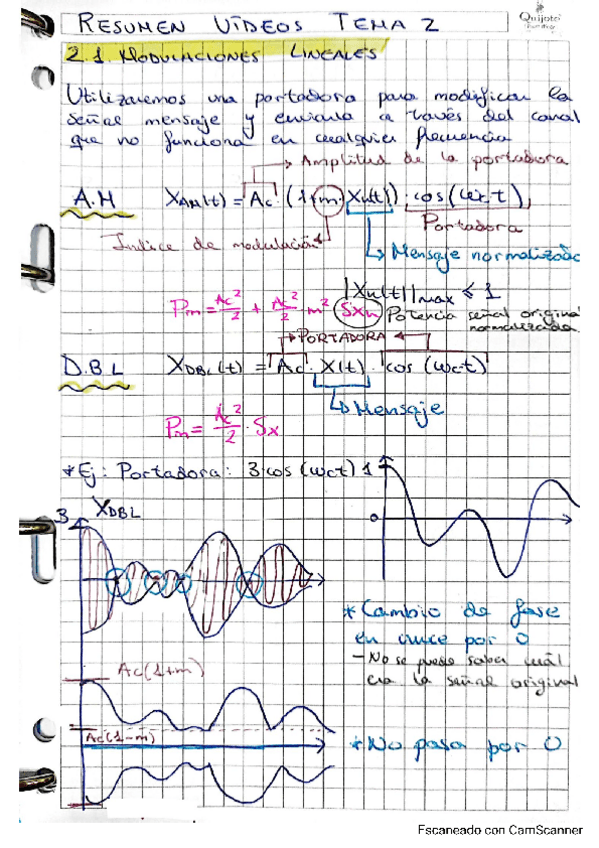 RESUMEN VÍDEOS TEMA 2
Quijote
2.1. MODULACIONES LINEALES
Utilizaremos una portadora para modificar la
señal mensaje y enviarla a través del canal
que no funciona en cualquier frecuencia
Amplitud de la portadora
A.M X_AM(t) = Ac · (1+m·Xn(t)) · cos(ωc·t)
Portadora
Indice de modulación
Mensaje normalizado
|Xn(t)|max ≤ 1
Pm = Ac²/2 + Ac²/2 · m² Sxn Potencia señal original
normalizada
PORTADORA
D.B.L X_DBL(t) = Ac · X(t) · cos(ωc·t)
Mensaje
Pm = Ac²/2 · Sx
*Ej: Portadora: 3·cos(ωct) 1
3 X_DBL
0
*Cambio de fase
en cruce por 0
- No se puede saber cuál
era la señal original
Ac(1+m)
Ac(1-m)
*No pasa por 0
Escaneado con CamScanner